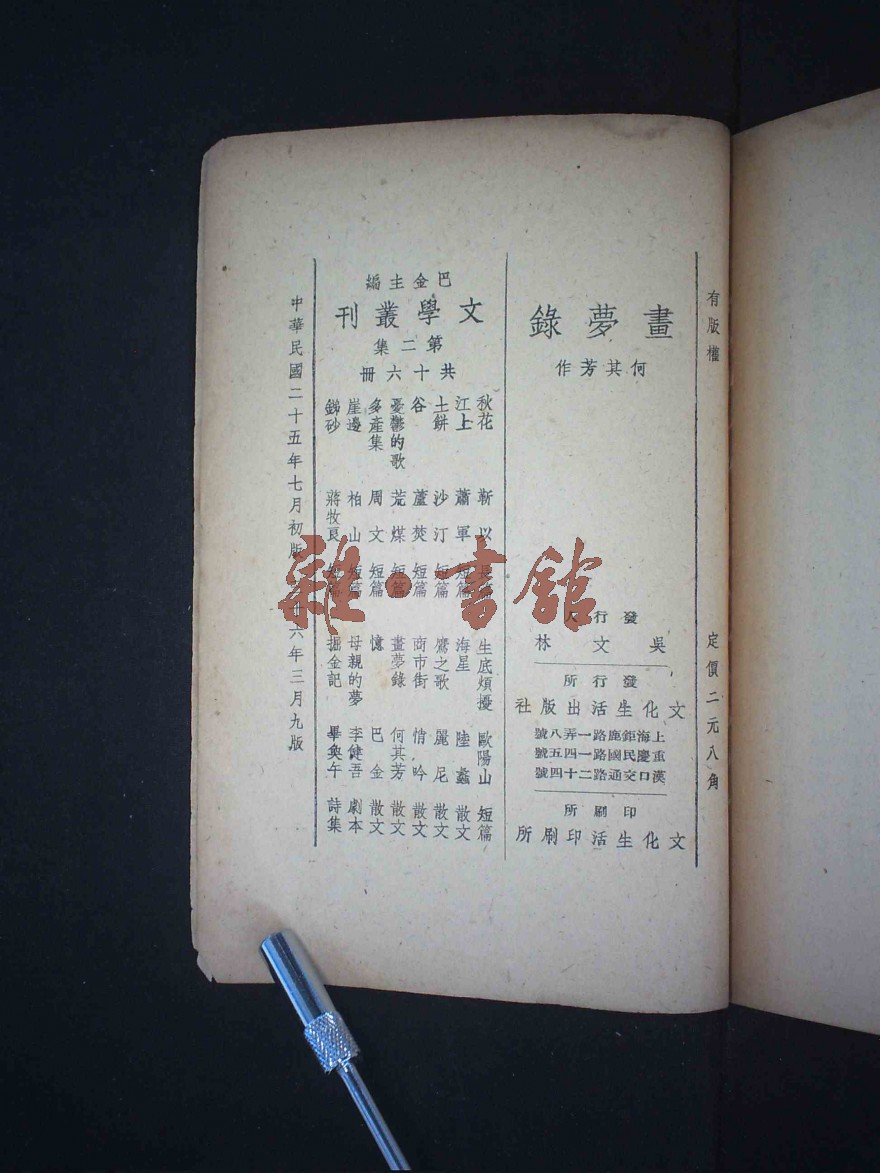 有版權 定價二元八角
畫夢錄
何其芳作
發行人
吳文林
發行所
文化生活出版社
上海鉅鹿路一弄八號
重慶民國路一四五號
漢口交通路二十四號
印刷所
文化生活印刷所
巴金主編
文學叢刊
第二集
共十六冊
秋花 靳以 長篇
江上 蕭軍 短篇
土餅 沙汀 短篇
谷 蘆焚 短篇
憂鬱的歌 荒煤 短篇
多產集 周文 短篇
崖邊 柏山 短篇
銻砂 蔣牧良 短篇
生底煩擾 歐陽山 短篇
海星 陸蠡 散文
鷹之歌 麗尼 散文
商市街 情吟 散文
畫夢錄 何其芳 散文
憶 巴金 散文
母親的夢 李健吾 劇本
掘金記 畢奐午 詩集
中華民國二十五年七月初版 卅六年三月九版
雜·書館